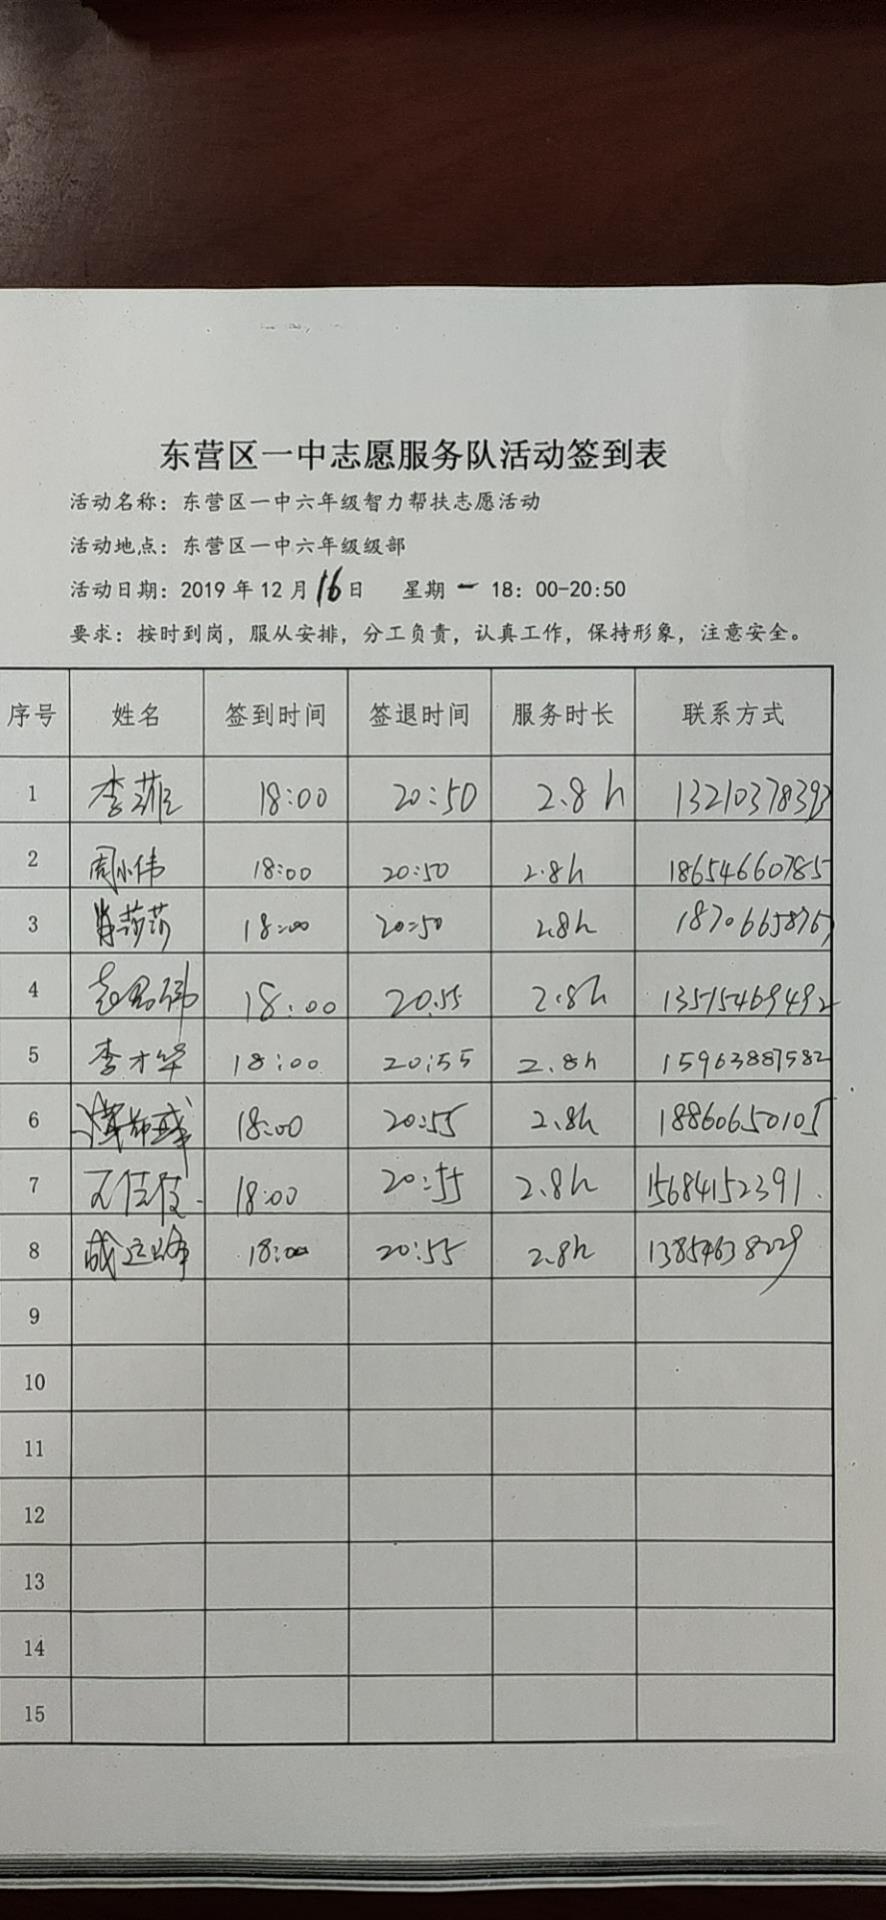 东营区一中志愿服务队活动签到表
活动名称：东营区一中六年级智力帮扶志愿活动
活动地点：东营区一中六年级级部
活动日期：2019 年 12 月 16 日 星期 一 18：00-20:50
要求：按时到岗，服从安排，分工负责，认真工作，保持形象，注意安全。
序号 姓名 签到时间 签退时间 服务时长 联系方式
1 李菲 18:00 20:50 2.8 h 13210378393
2 周小伟 18:00 20:50 2.8h 18654660785
3 肖莎莎 18:00 20:50 2.8h
4 18:00 20.55 2.8h 13515469492
5 李才华 18:00 20:55 2.8h 15963887582
6 18:00 20:55 2.8h 18860650105
7 18:00 20:55 2.8h 15684152391.
8 18:00 20:55 2.8h 13854638229
9
10
11
12
13
14
15